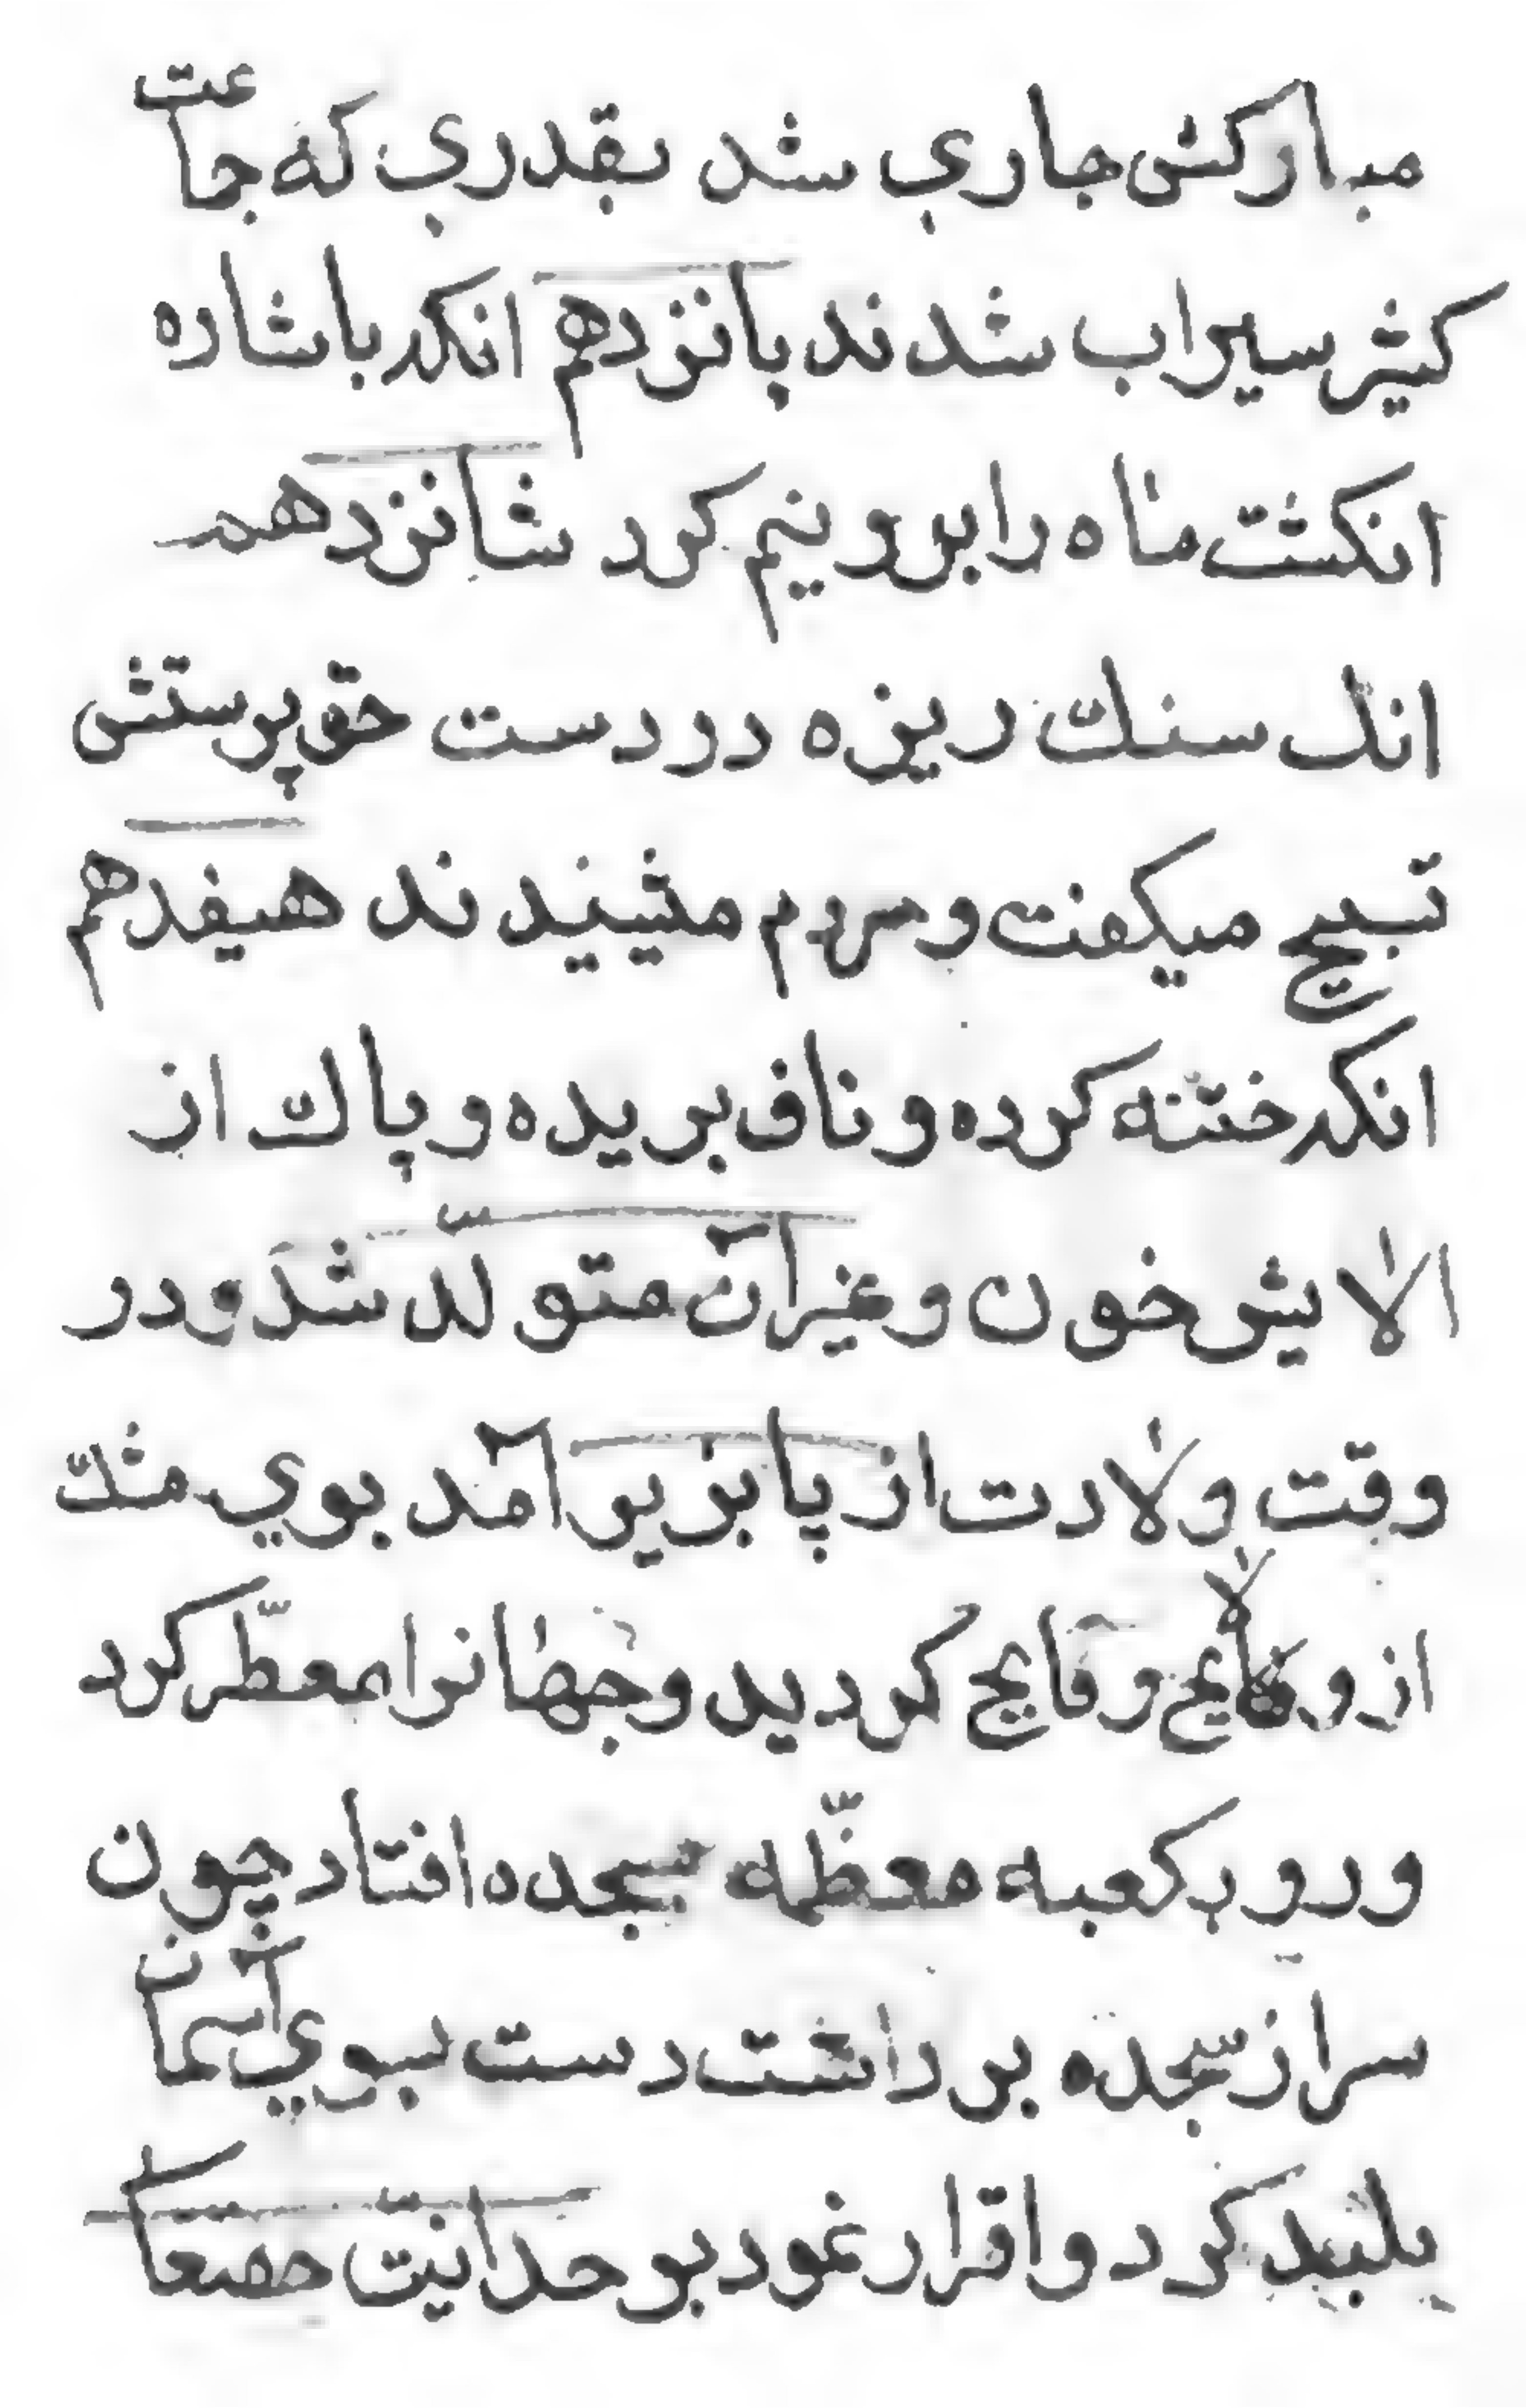 مبارکش جاري شد بقدري که جماعت
کثیر سیراب شدند پانزدهم انکه باشاره
انکشت ماه را بدو نیم کرد شانزدهم
انک سنك ریزه در دست حق پرستش
تسبیح میکفت و مردم میشنیدند هیفدهم
انکه ختنه کرده و ناف بریده و پاك از
الایش خون و غیر آن متولد شد و در
وقت ولادت از پا بزیر آمد بوي مشك
از و لایح و فایح کردید و جهانرا معطّر کرد
و رو بکعبه معظّمه بسجده افتاد چون
سر از سجده بر داشت دست بسوي آسمان
بلند کرد و اقرار نمود بوحدانیت